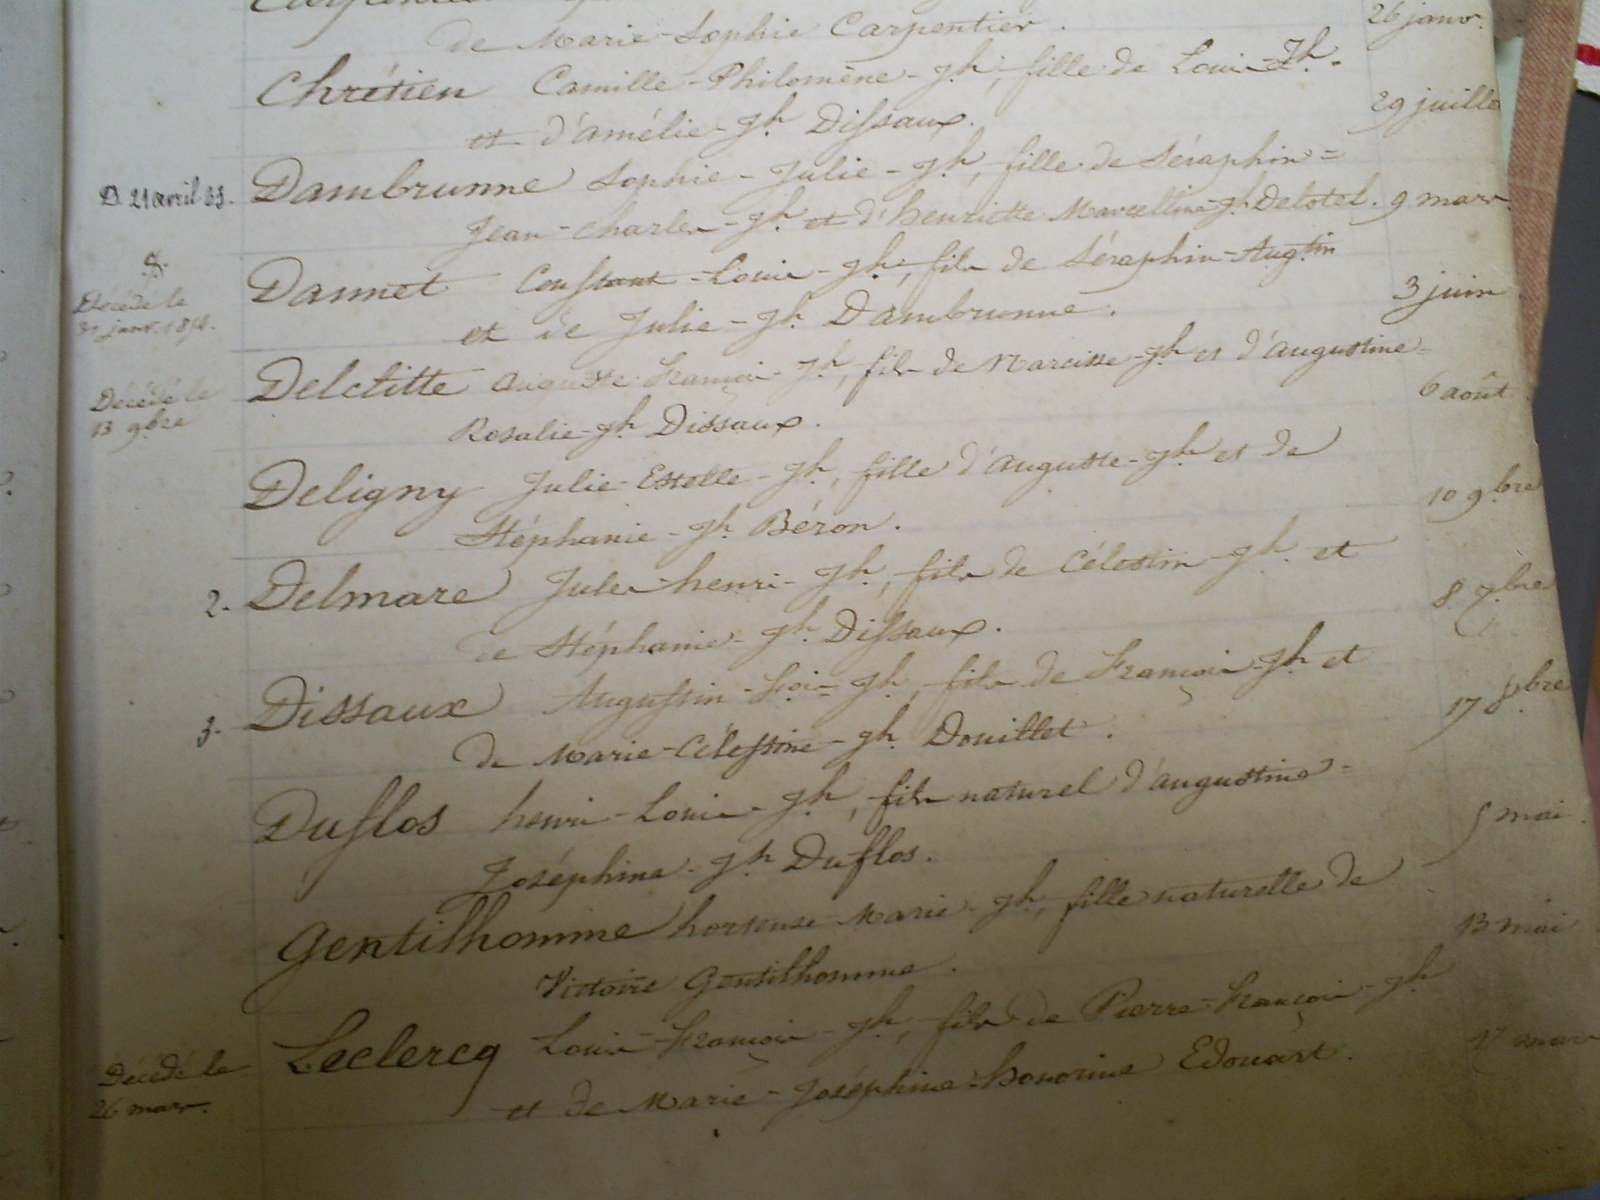 de Marie-Sophie Carpentier. 26 janv.
Chrétien Camille-Philomène-Jh, fille de Louis-Jh.
et d'amélie-Jh Dissaux. 29 juillet
D. 21 avril 55. Dambrunne Sophie-Julie-Jh, fille de Séraphin=
Jean-charles-Jh et d'henriette Marcelline-Jh Delotel. 9 mars
Décédé le 31 janv. 1894. Dannet Constant-Louis-Jh, fils de Séraphin-Augtin
et de Julie-Jh Dambrunne. 3 juin
Décédé le 13 9bre Delclitte auguste françois-Jh, fils de Narcisse-Jh et d'augustine-
Rosalie-Jh Dissaux. 6 août
Deligny Julie-Estelle-Jh, fille d'auguste-Jh et de
Stéphanie-Jh Béron. 10 9bre
2. Delmare Jules-henri-Jh, fils de Célestin-Jh et
de Stéphanie-Jh Dissaux. 8 7bre
3. Dissaux Augustin-fois=Jh, fils de François-Jh et
de Marie-Célestine-Jh Douillet. 17 8bre
Duflos henri-Louis-Jh, fils naturel d'augustine-
Joséphine-Jh Duflos. 5 mai.
Gentilhomme hortense-Marie-Jh, fille naturelle de
Victoire Gentilhomme. 13 mai
Décédé le 26 mars. Leclercq Louis-François-Jh, fils de Pierre-François-Jh
et de Marie-Joséphine-honorine Edouart. mars